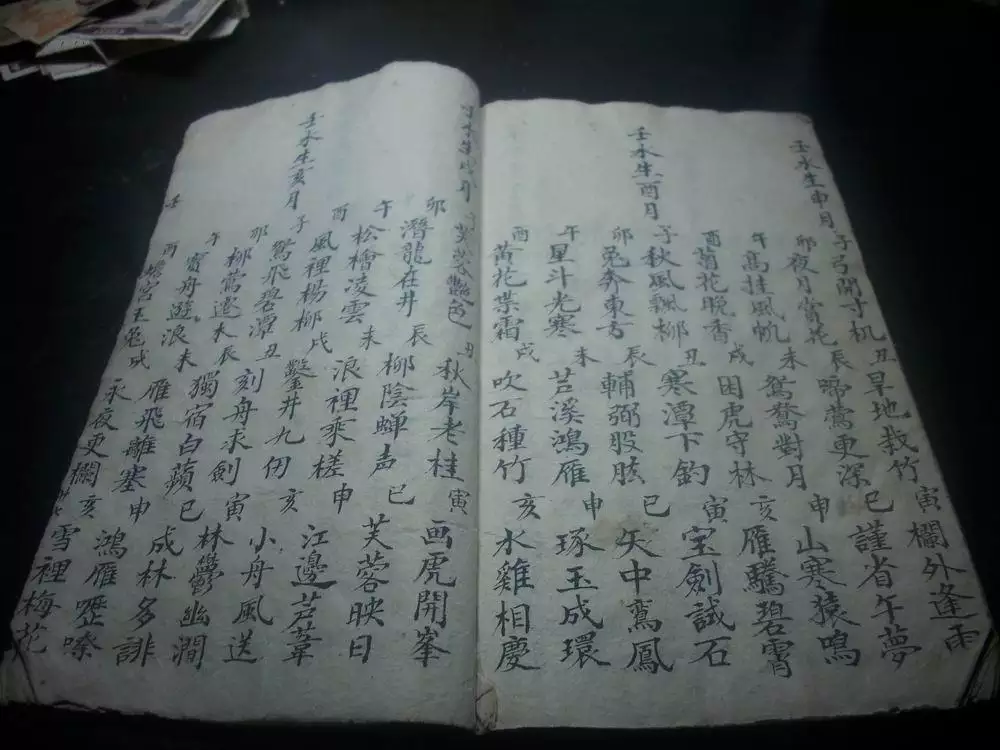 壬水生申月
子弓開寸机丑旱地栽竹寅欄外逢雨
卯夜月賞花辰啼鶯更深巳謹省午夢
午高挂風帆未鴛鴦對月申山寒猿鳴
酉菊花晚香戌困虎守林亥雁騰碧霄
壬水生酉月
子秋風飄柳丑寒潭下釣寅宝劍試石
卯兔奔東方辰輔弼股肱巳矢中鸞鳳
午星斗光寒未芦溪鴻雁申琢玉成環
酉黃花業霜戌吹石種竹亥水雞相慶
壬水生戌月
芙蓉艷色丑秋岸老桂寅画虎開峯
卯潛龍在井辰柳陰蝉声巳芙蓉映日
午松檜凌雲未浪裡乘槎申江邊芦葦
酉風裡楊柳戌鑿井九仞亥小舟風送
壬水生亥月
子鴛飛碧潭丑刻舟求劍寅林鬱幽澗
卯柳鶯遷木辰獨宿白蘋巳成林多誹
午寶舟遊浪未雁飛離塞申鴻雁嚦嗦
酉蟾宮玉兔戌永夜更欄亥雪裡梅花
壬